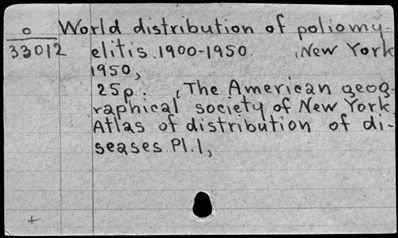 o World distribution of poliomy-
33012 elitis. 1900-1950. (New York
1950,
25p. (The American geog-
raphical society of New York.
Atlas of distribution of di-
seases Pl.1,